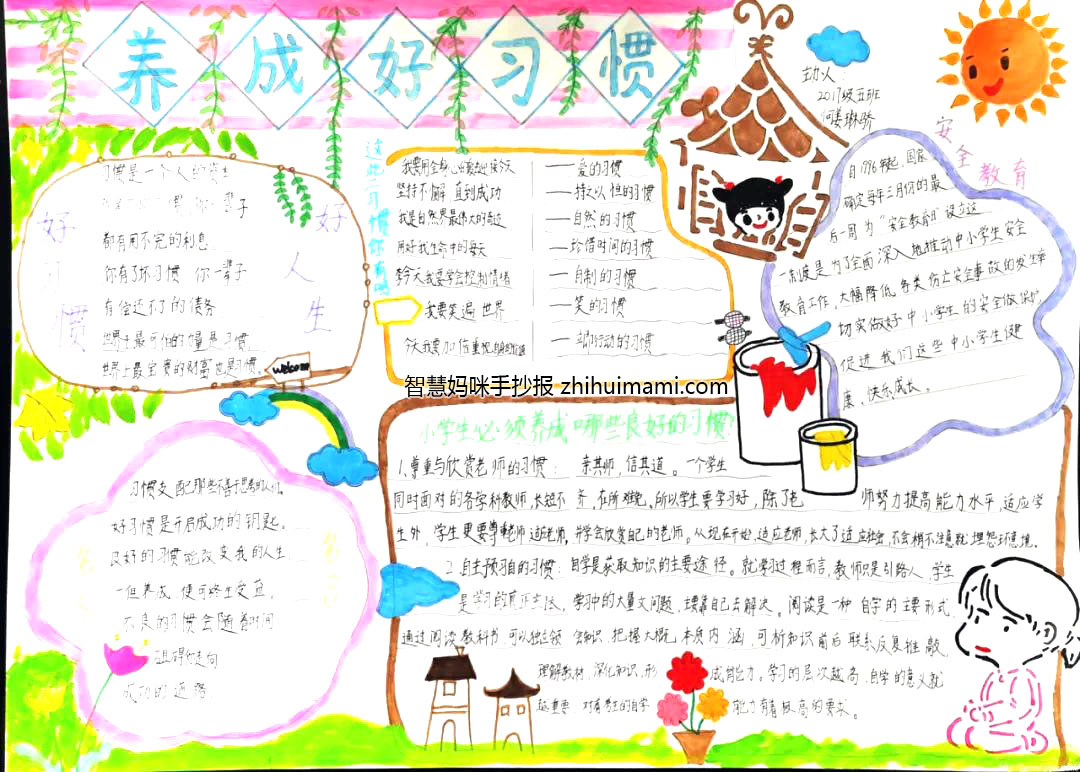 养成好习惯
主办人：
2017级五班
何姜琳骄
好习惯
好人生
习惯是一个人的资本
你一辈子
都有用不完的利息
你有了坏习惯 你一辈子
有偿还不了的债务
世界上最可怕的力量是习惯
世界上最宝贵的财富也是习惯。
welcome
这些习惯你有吗
我要用全身心的爱迎接今天
——爱的习惯
坚持不懈 直到成功
——持之以恒的习惯
我是自然界最伟大的奇迹
——自然的习惯
用好我生命中的每天
——珍惜时间的习惯
今天我要学会控制情绪
——自制的习惯
我要笑遍世界
——笑的习惯
今天我要加倍重视
——立即行动的习惯
安全教育
自1996年起，国家
确定每年三月份的最
后一周为“安全教育日”设立这
一制度是为了全面深入地推动中小学生安全
教育工作，大幅降低各类伤亡安全事故的发生率
切实做好中小学生的安全保护
促进我们这些中小学生健
康，快乐成长。
智慧妈咪手抄报 zhihuimami.com
小学生必须养成哪些良好的习惯？
1.尊重与欣赏老师的习惯： 亲其师，信其道。一个学生
同时面对的各学科教师，长短不齐，在所难免。所以学生要学习好，除了老师努力提高能力水平，适应学
生外，学生更要尊重老师适应老师，并学会欣赏自己的老师。从现在开始，适应老师，长大了适应社会，不会稍不注意就埋怨环境。
2.自主预习的习惯：自学是获取知识的主要途径。就学习过程而言，教师只是引路人，学生
是学习的真正主体，学习中的大量问题，主要靠自己去解决。阅读是一种自学的主要形式
通过阅读教科书可以独立领会知识，把握大概，本质内涵，可析知识前后联系反复推敲
理解教材，深化知识，形成能力。学习的层次越高，自学的意义就
越重要 对有责任的自学能力有着极高的要求。
习惯支配那些不善于思考的人们。
好习惯是开启成功的钥匙。
良好的习惯能改变我的人生
一但养成 便可终生受益，
不良的习惯会随着时间
阻碍你走向
成功的道路